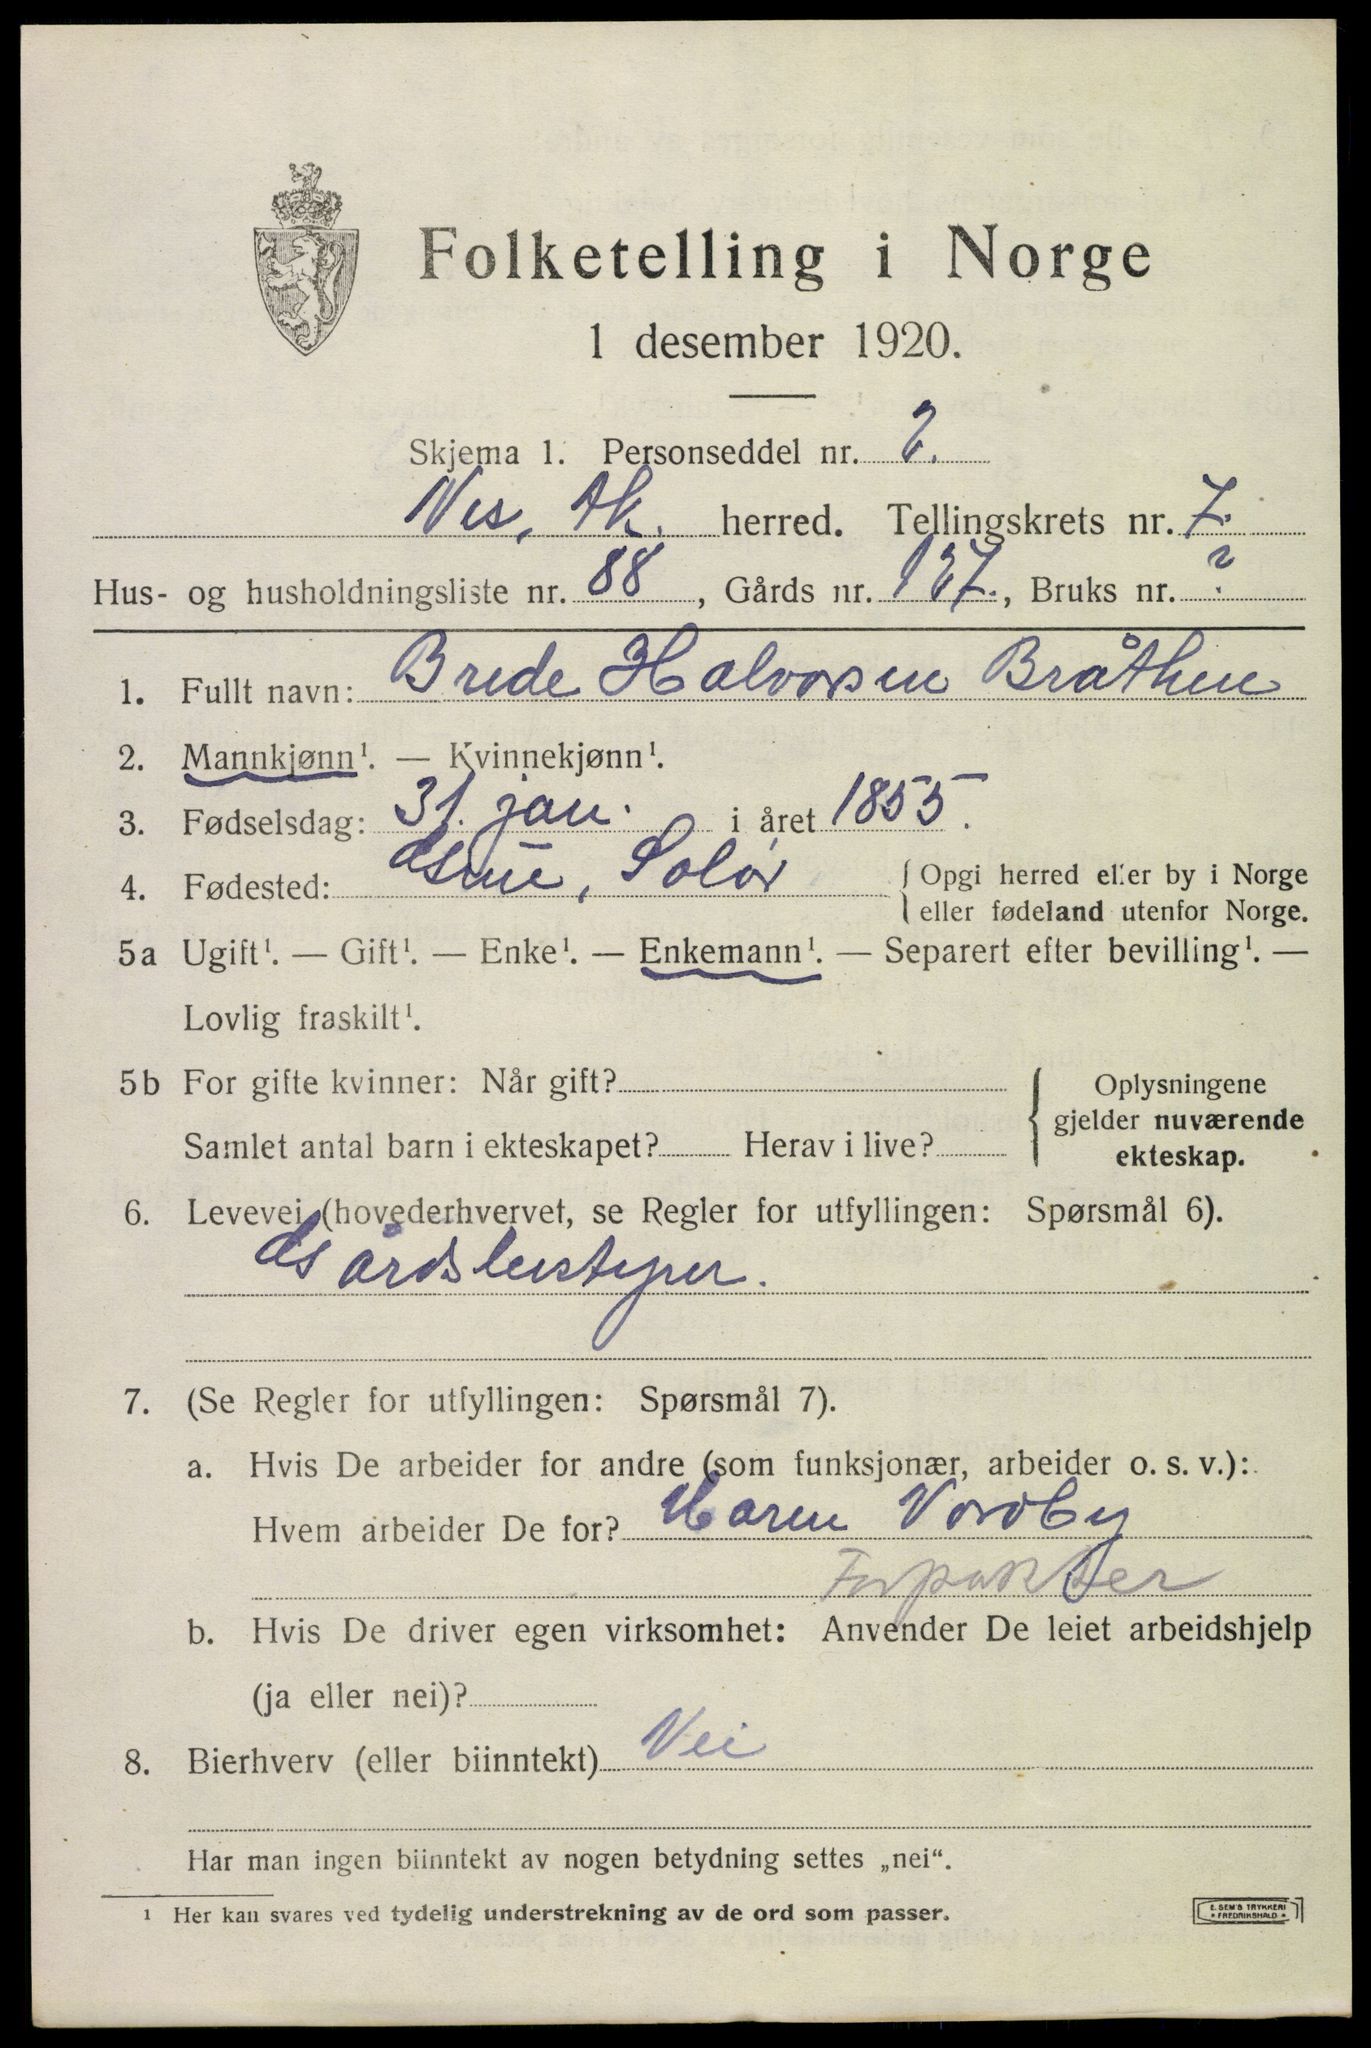 Folketelling i Norge
1 desember 1920.
Skjema 1. Personseddel nr. 2.
Nes, Ak. herred. Tellingskrets nr. 7.
Hus- og husholdningsliste nr. 88, Gårds nr. 127., Bruks nr. ?
1. Fullt navn: Brede Halvorsen Bråthen
2. Mannkjønn¹. — Kvinnekjønn¹.
3. Fødselsdag: 31. jan. i året 1855.
4. Fødested: Grue, Solør { Opgi herred eller by i Norge
eller fødeland utenfor Norge.
5a Ugift¹. — Gift¹. — Enke¹. — Enkemann¹. — Separert efter bevilling¹. —
Lovlig fraskilt¹.
5b For gifte kvinner: Når gift? { Oplysningene
gjelder nuværende
Samlet antal barn i ekteskapet? Herav i live?
ekteskap.
6. Levevei (hovederhvervet, se Regler for utfyllingen: Spørsmål 6).
Gårdsbestyrer.
7. (Se Regler for utfyllingen: Spørsmål 7).
a. Hvis De arbeider for andre (som funksjonær, arbeider o. s. v.):
Hvem arbeider De for? Maren Nordby
Forpakter
b. Hvis De driver egen virksomhet: Anvender De leiet arbeidshjelp
(ja eller nei)?
8. Bierhverv (eller biinntekt) Nei
Har man ingen biinntekt av nogen betydning settes „nei“.
¹ Her kan svares ved tydelig understrekning av de ord som passer.
E. SEM'S TRYKKERI
* FREDRIKSHALD *